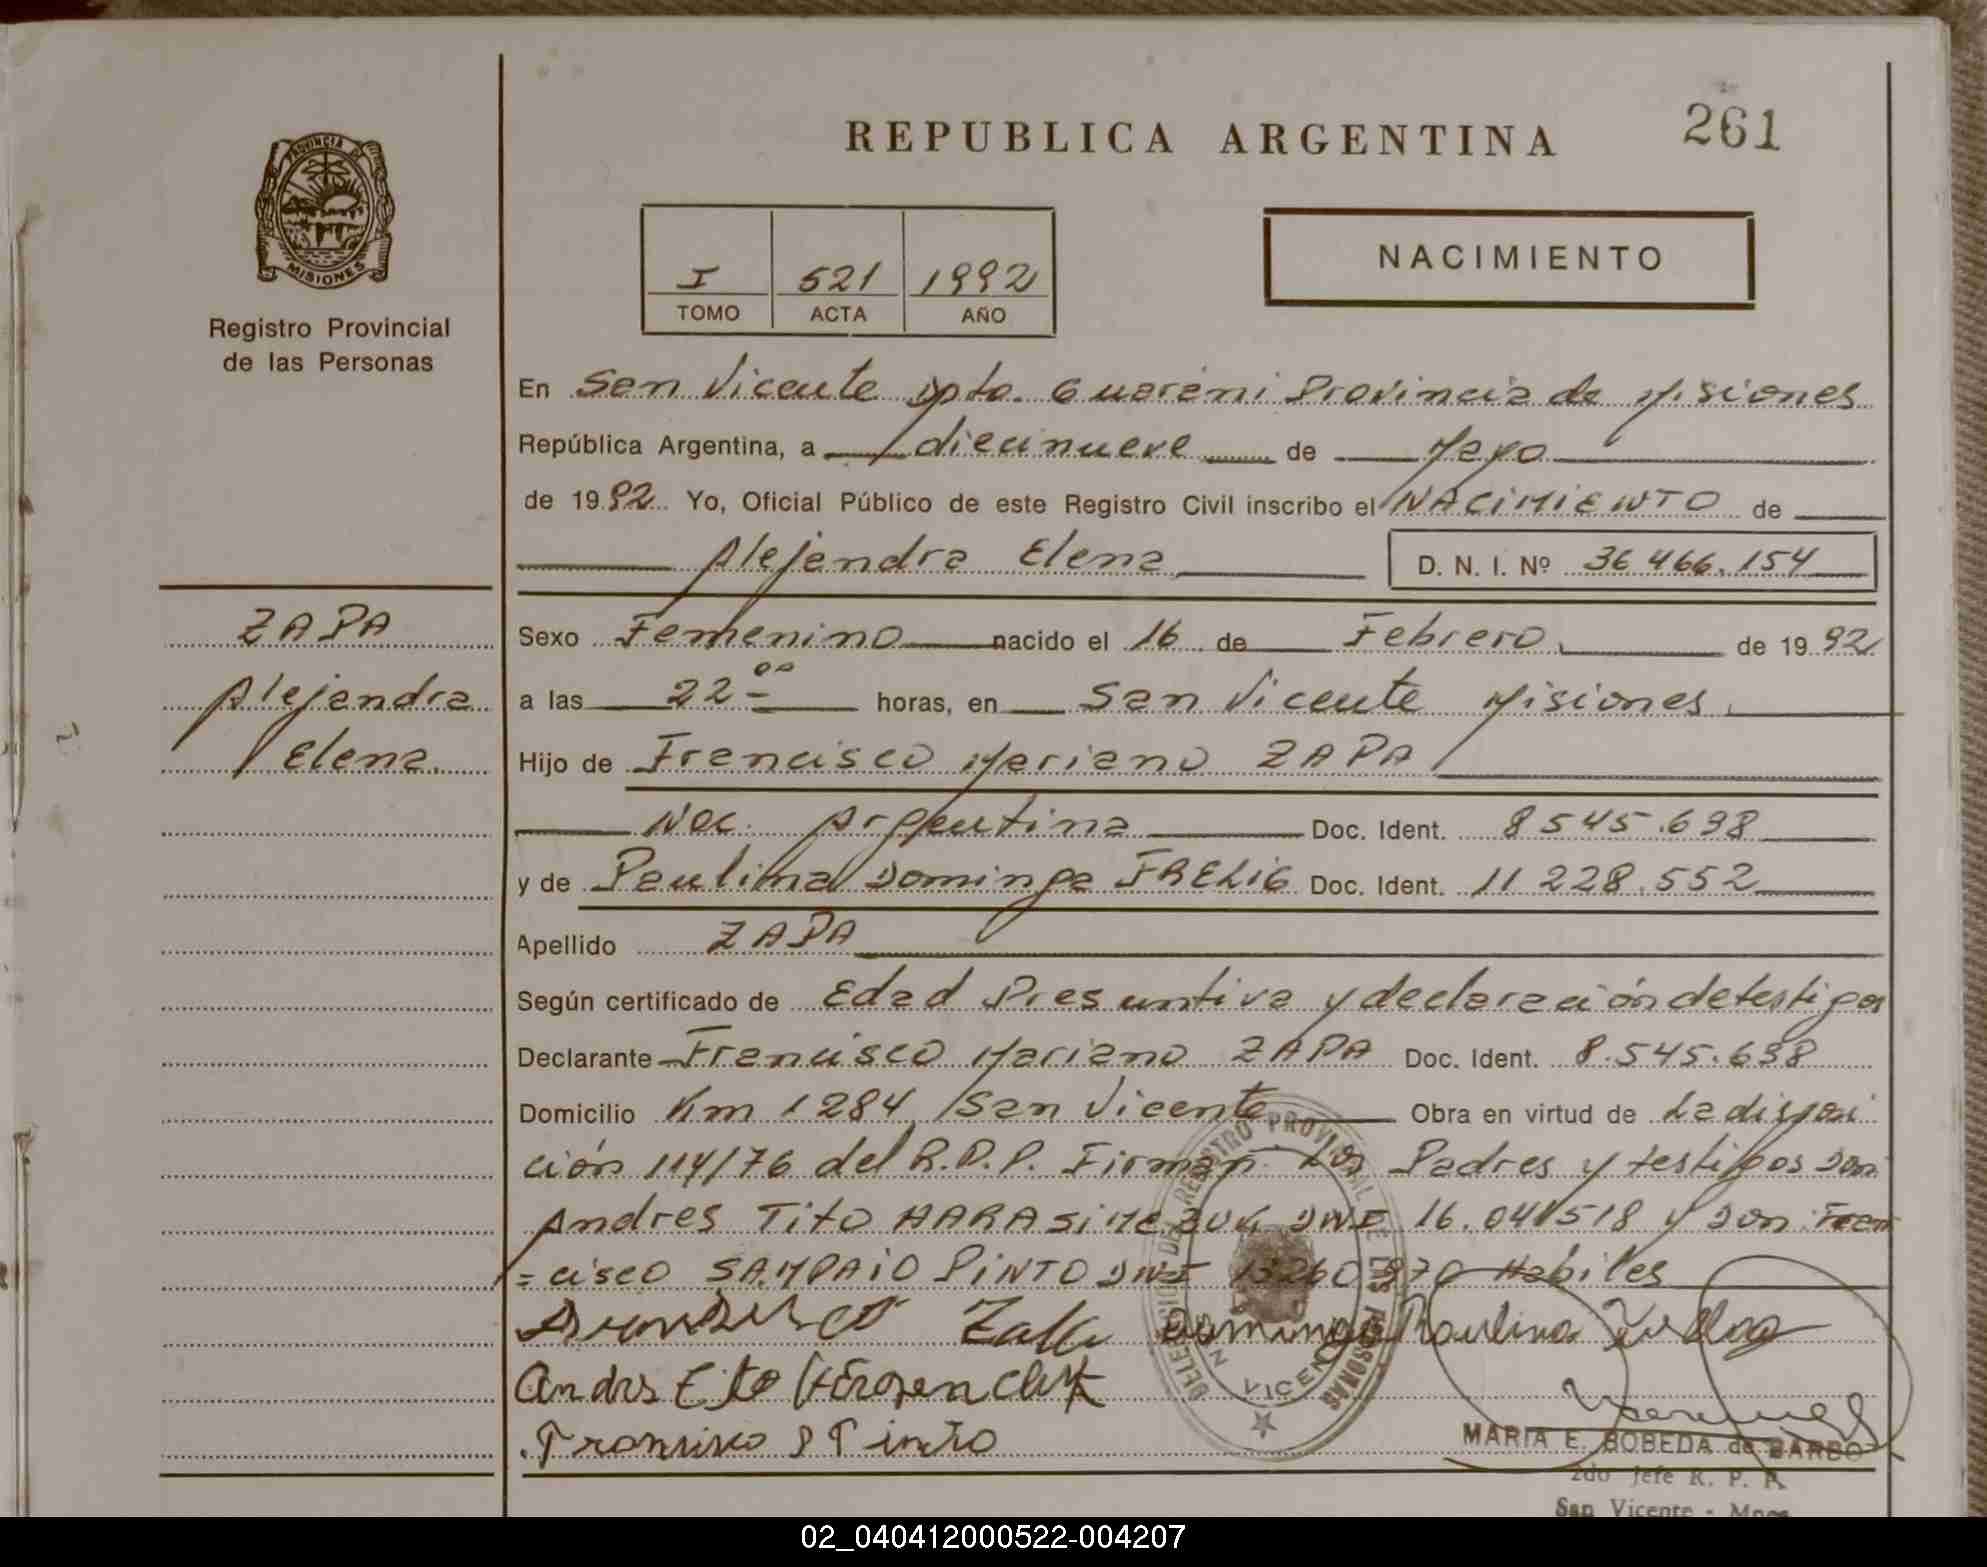 REPUBLICA ARGENTINA
261
PROVINCIA DE
MISIONES
Registro Provincial
de las Personas
I 521 1992
TOMO ACTA AÑO
NACIMIENTO
En San Vicente Dpto. Guarani Provincia de Misiones
República Argentina, a diecinueve de Mayo
de 1992 Yo, Oficial Público de este Registro Civil inscribo el NACIMIENTO de
Alejandra Elena D. N. I. Nº 36 466.154
ZAPA
Alejandra
Elena
Sexo Femenino nacido el 16 de Febrero de 1992
a las 22 00 horas, en San Vicente Misiones
Hijo de Francisco Mariano ZAPA
Nac. Argentina Doc. Ident. 8545.698
y de Paulina Dominga FRELIG Doc. Ident. 11 228.552
Apellido ZAPA
Según certificado de Edad Presuntiva y declaración de testigos
Declarante Francisco Mariano ZAPA Doc. Ident. 8.545.698
Domicilio Km 1284 San Vicente Obra en virtud de La disposi
ción 114/76 del R.P.P. Firman Los Padres y testigos Don
Andres Tito DNI 16.041518 y Don Fran
=cisco SAMPAIO PINTO DNI Habiles
Paulina
DELEGACION DEL REGISTRO PROVINCIAL DE LAS PERSONAS
SAN VICENTE
MARIA E. BOBEDA de BARBO
2do Jefe R. P. P.
San Vicente - Mnes
02_040412000522-004207